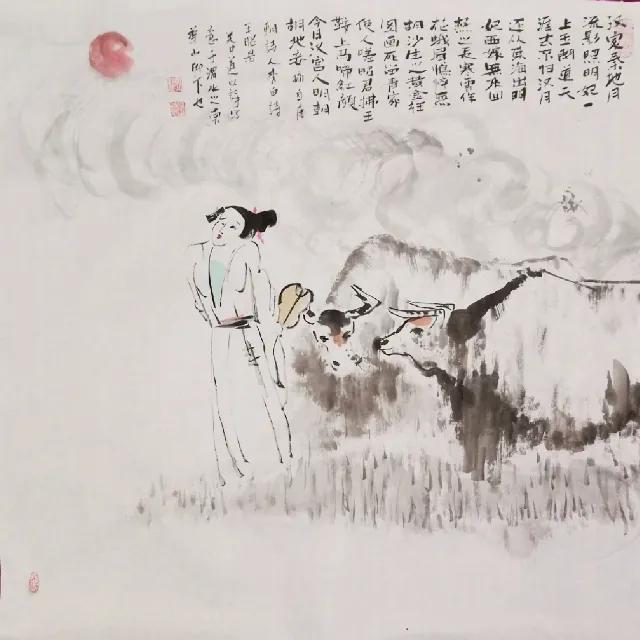 汉家秦地月
流影照明妃一
上玉關道天
涯去不归汉月
还从東海出明
妃西嫁無来日
燕支長寒雪作
花蛾眉憔悴没
胡沙生乏黄金枉
图画死留青冢
使人嗟昭君拂玉
鞍上马啼红颊
今日汉宫人明朝
胡地妾
诗人李白诗
王昭君